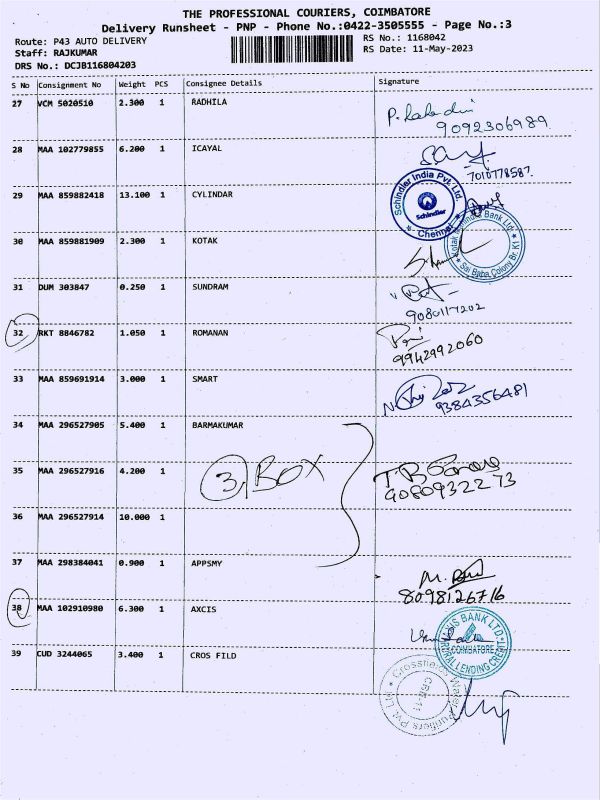 THE PROFESSIONAL COURIERS, COIMBATORE
Delivery Runsheet - PNP - Phone No.:0422-3505555 - Page No.:3
Route: P43 AUTO DELIVERY
Staff: RAJKUMAR
DRS No.: DCJB116804203
RS No.: 1168042
RS Date: 11-May-2023
S No Consignment No Weight PCS Consignee Details Signature
27 VCM 5020510 2.300 1 RADHILA
9092306989
28 MAA 102779855 6.200 1 ICAYAL
7010778587
29 MAA 859882418 13.100 1 CYLINDAR
Schindler India Pvt. Ltd.
Schindler
Chennai
30 MAA 859881909 2.300 1 KOTAK
Kotak Mahindra Bank Ltd.
Sai Baba Colony Br. K1
31 DUM 303847 0.250 1 SUNDRAM
9080117202
32 RKT 8846782 1.050 1 ROMANAN
9942992060
33 MAA 859691914 3.000 1 SMART
9384356481
34 MAA 296527905 5.400 1 BARMAKUMAR
35 MAA 296527916 4.200 1
3. BOX
9080932273
36 MAA 296527914 10.000 1
37 MAA 298384041 0.900 1 APPSMY
8098126716
38 MAA 102910980 6.300 1 AXCIS
AXIS BANK LTD.
COIMBATORE
39 CUD 3244065 3.400 1 CROS FILD
Crossfields Water Purifiers Pvt. Ltd
CBE-11